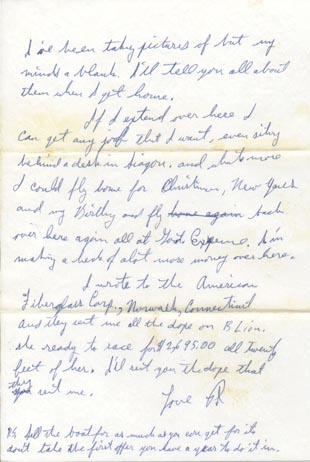 I've been taking pictures of but my
minds a blank. I'll tell you all about
them when I get home.
If I extend over here I
can get any job that I want, even sitting
behind a desk in Siagon. and whats more
I could fly home for Christmas, New Years
and my Birthday and fly home again back
over here again all at Govt. Expense. I'm
making a heck of alot more money over here.
I wrote to the American
Fiberglass Corp., Norwalk, Connecticut
And they sent me all the dope on B Lion.
she ready to race for $2695.00 all twenty
feet of her. I'll sent you the dope that
they sent me.
Love
P/S Sell the boat for as much as you can get for it
don't take the first offer you have a year to do it in.